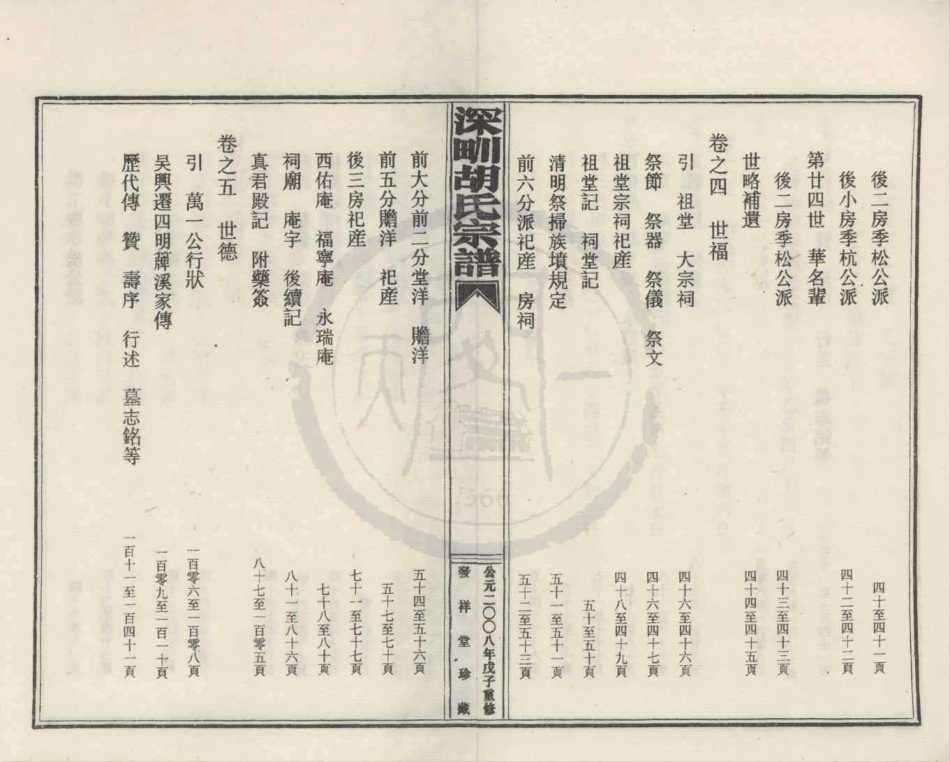 後二房季松公派　四十至四十一頁
後小房季杭公派　四十二至四十二頁
第廿四世　華名輩
後二房季松公派　四十三至四十三頁
世略補遺　四十四至四十五頁
卷之四　世福
引　祖堂　大宗祠　四十六至四十六頁
祭節　祭器　祭儀　祭文　四十六至四十七頁
祖堂宗祠祀産　四十八至四十九頁
祖堂記　祠堂記　五十至五十頁
清明祭掃族墳規定　五十一至五十一頁
前六分派祀産　房祠　五十二至五十三頁
深甽胡氏宗譜
公元二〇〇八年戊子重修
發祥堂珍藏
前大分前二分堂洋　贍洋　五十四至五十六頁
前五分贍洋　祀産　五十七至七十頁
後三房祀産　七十一至七十七頁
西佑庵　福寧庵　永瑞庵　七十八至八十頁
祠廟　庵宇　後續記　八十一至八十六頁
真君殿記　附藥簽　八十七至一百零五頁
卷之五　世德
引　萬一公行狀　一百零六至一百零八頁
吳興遷四明薛溪家傳　一百零九至一百一十頁
歷代傳　贊　壽序　行述　墓志銘等　一百十一至一百四十一頁
1566